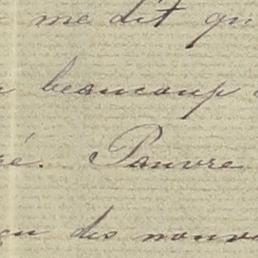 me dit qu
beaucoup
é. Pauvre
çu des nouv